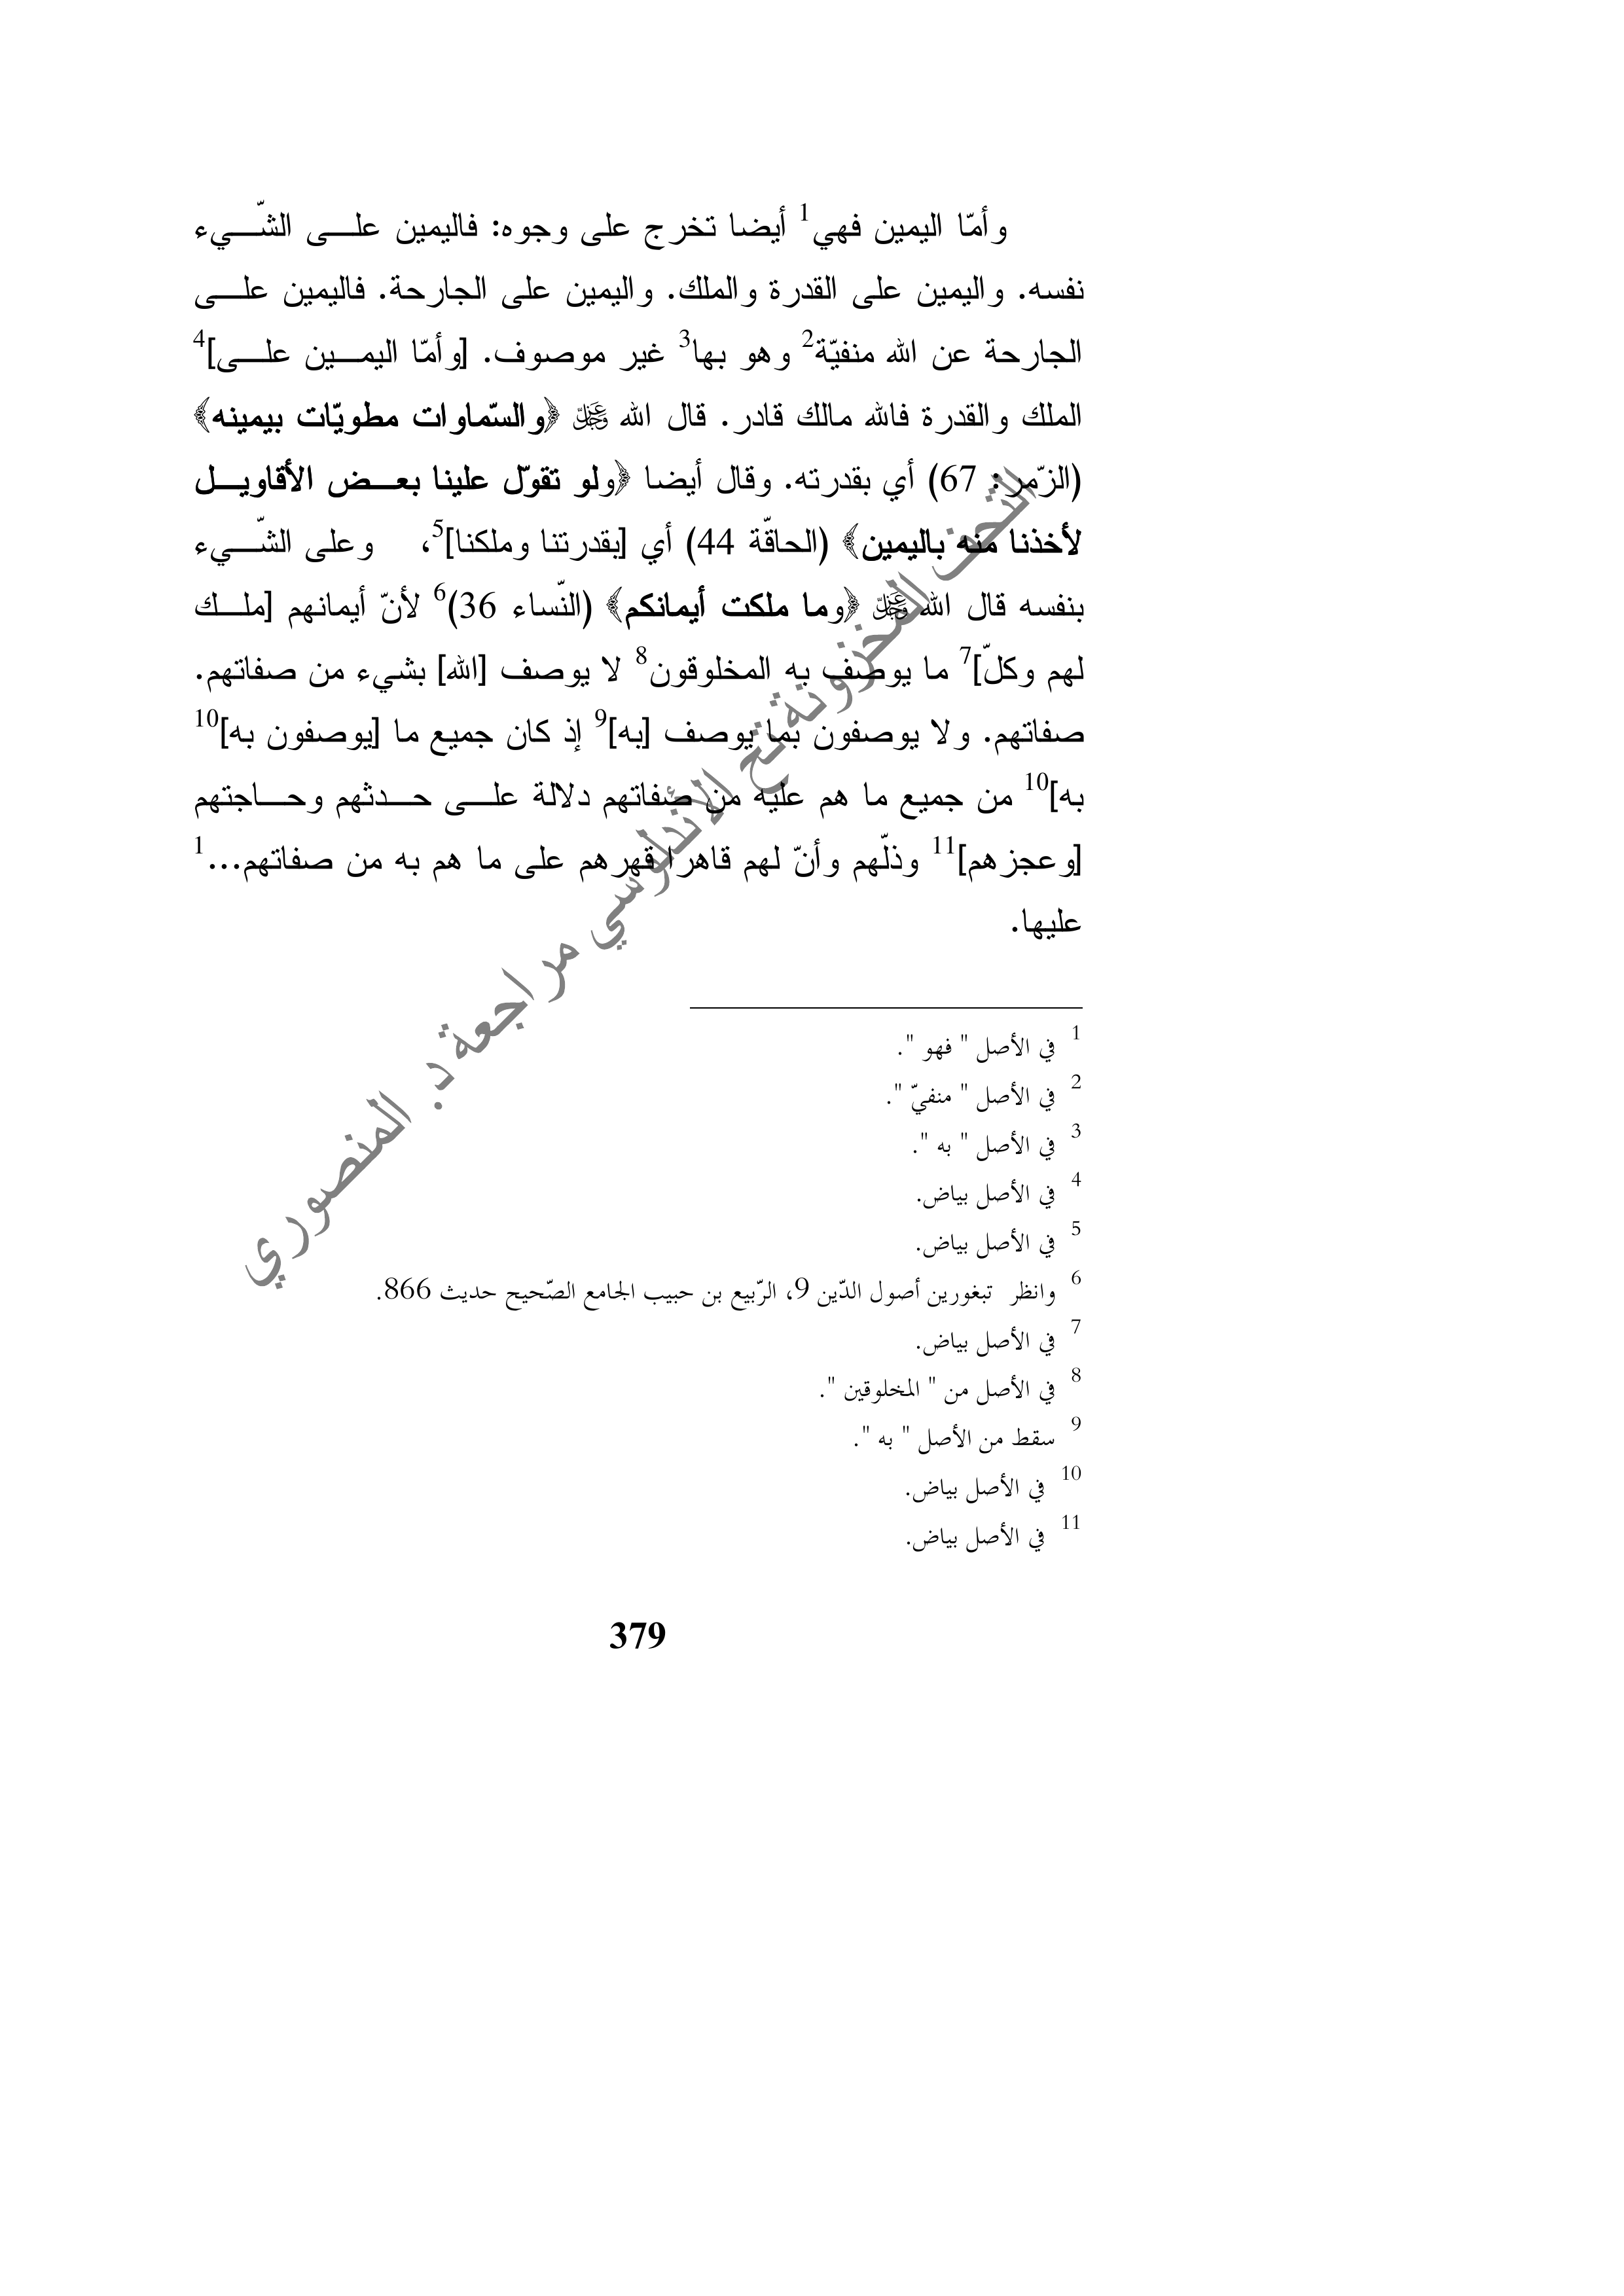 وأمّا اليمين فهي1 أيضا تخرج على وجوه: فاليمين على الشّيء
نفسه. واليمين على القدرة والملك. واليمين على الجارحة. فاليمين على
الجارحة عن الله منفيّة2 وهو بها3 غير موصوف. [وأمّا اليمين على]4
الملك والقدرة فالله مالك قادر. قال الله ﷻ ﴿والسّماوات مطويّات بيمينه﴾
(الزّمر: 67) أي بقدرته. وقال أيضا ﴿ولو تقوّل علينا بعض الأقاويل
لأخذنا منه باليمين﴾ (الحاقّة 44) أي [بقدرتنا وملكنا]5، وعلى الشّيء
بنفسه قال الله ﷻ ﴿وما ملكت أيمانكم﴾ (النّساء 36)6 لأنّ أيمانهم [ملك
لهم وكلّ]7 ما يوصف به المخلوقون8 لا يوصف [الله] بشيء من صفاتهم.
صفاتهم. ولا يوصفون بما يوصف [به]9 إذ كان جميع ما [يوصفون به]10
به]10 من جميع ما هم عليه من صفاتهم دلالة على حدثهم وحاجتهم
[وعجزهم]11 وذلّهم وأنّ لهم قاهرا قهرهم على ما هم به من صفاتهم...1
عليها.
1 في الأصل " فهو ".
2 في الأصل " منفيّ ".
3 في الأصل " به ".
4 في الأصل بياض.
5 في الأصل بياض.
6 وانظر تبغورين أصول الدّين 9، الرّبيع بن حبيب الجامع الصّحيح حديث 866.
7 في الأصل بياض.
8 في الأصل من " المخلوقين ".
9 سقط من الأصل " به ".
10 في الأصل بياض.
11 في الأصل بياض.
379
التحف المخزونة تح الأندلوسي مراجعة د. المنصوري